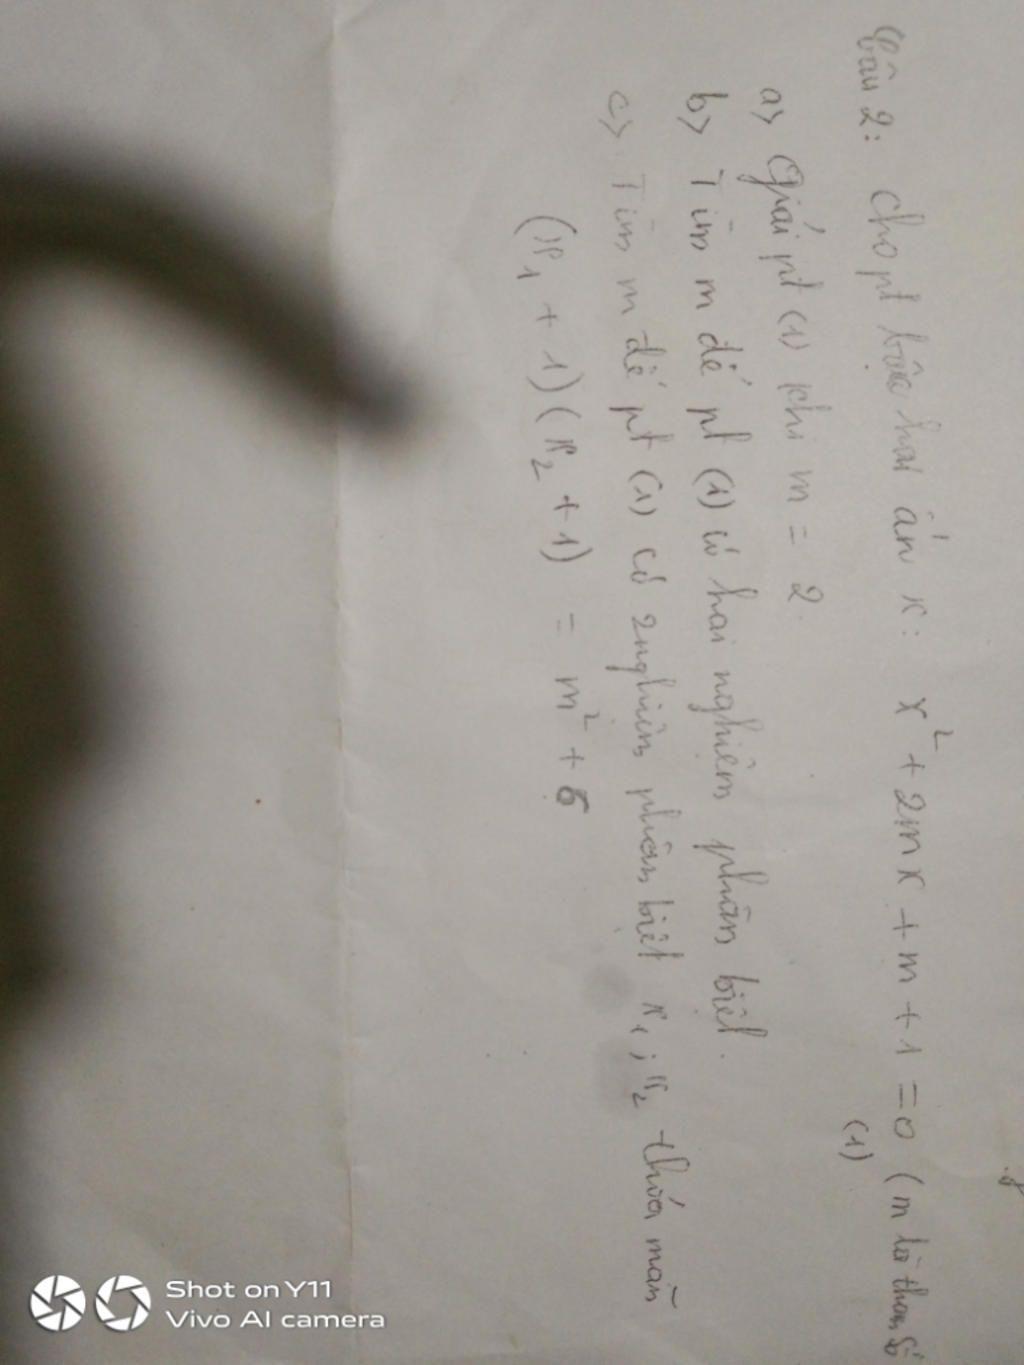 Câu 2: Cho pt bậc hai ẩn x: x² + 2mx + m + 1 = 0 (m là tham số
(1)
a> Giải pt (1) khi m = 2
b> Tìm m để pt (1) có hai nghiệm phân biệt.
c> Tìm m để pt (1) có 2 nghiệm phân biệt x₁; x₂ thỏa mãn
(x₁ + 1)(x₂ + 1) = m² + 6
Shot on Y11
Vivo AI camera